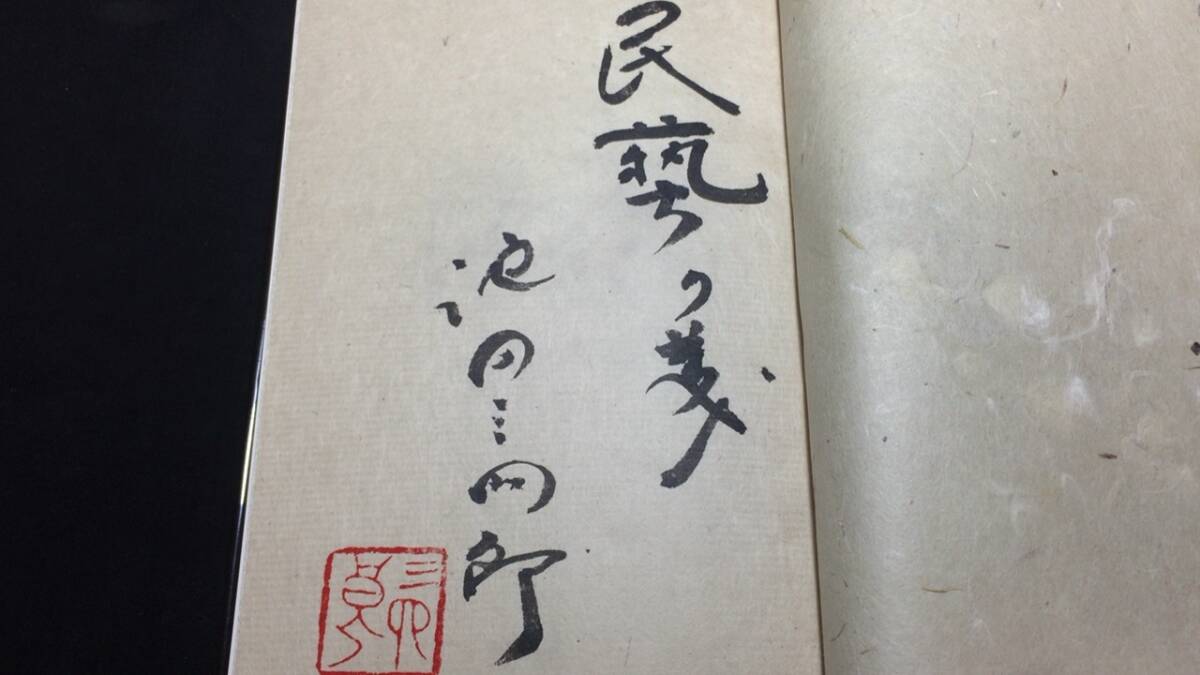 民藝の義
池田三四郎
三四郎